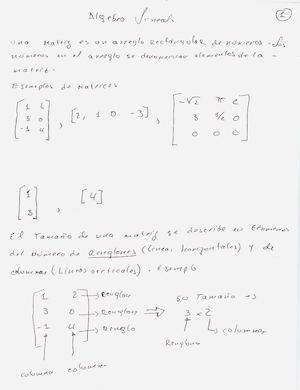 Algebra Lineal
1
una matriz es un arreglo rectangular de números. Los
números en el arreglo se denominan elementos de la
matriz.
Ejemplos de matrices
1 2
3 0
-1 4
, [2, 1 0 -3],
-√2 π e
3 1/2 0
0 0 0
1
3
, [4]
El Tamaño de una matriz se describe en términos
del número de Renglones (Líneas horizontales) y de
columnas (Líneas verticales). Ejemplo
1 2 → Renglón
3 0 → Renglón ⇒
-1 4 → Renglo
su Tamaño es
3 x 2
columnas
Renglones
columna columna